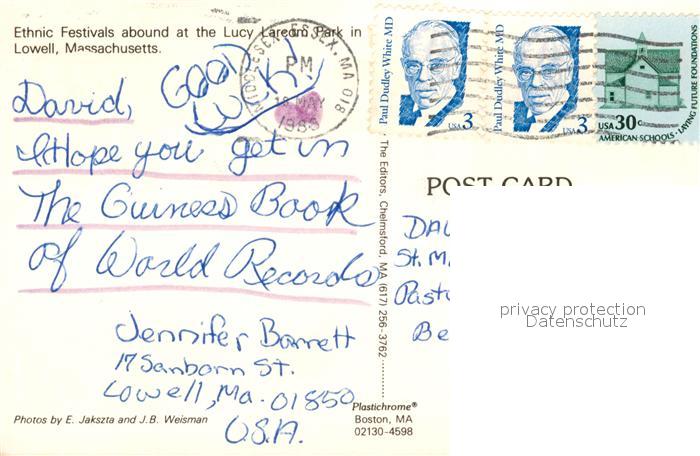 Ethnic Festivals abound at the Lucy Larcom Park in
Lowell, Massachusetts.
GOOD
LUCK!
MIDDLESEX-ESSEX, MA 018
PM
MAY
David,
I Hope you get in
The Guiness Book
of World Records
Jennifer Barrett
17 Sanborn St.
Lowell, Ma. 01850
U.S.A.
Photos by E. Jakszta and J.B. Weisman
The Editors, Chelmsford, MA (617) 256-3762
Plastichrome®
Boston, MA
02130-4598
Paul Dudley White MD
USA 3
Paul Dudley White MD
USA 3
USA 30c
AMERICAN SCHOOLS · LAYING FUTURE FOUNDATIONS
POST CARD
St. M
Past
Be
privacy protection
Datenschutz